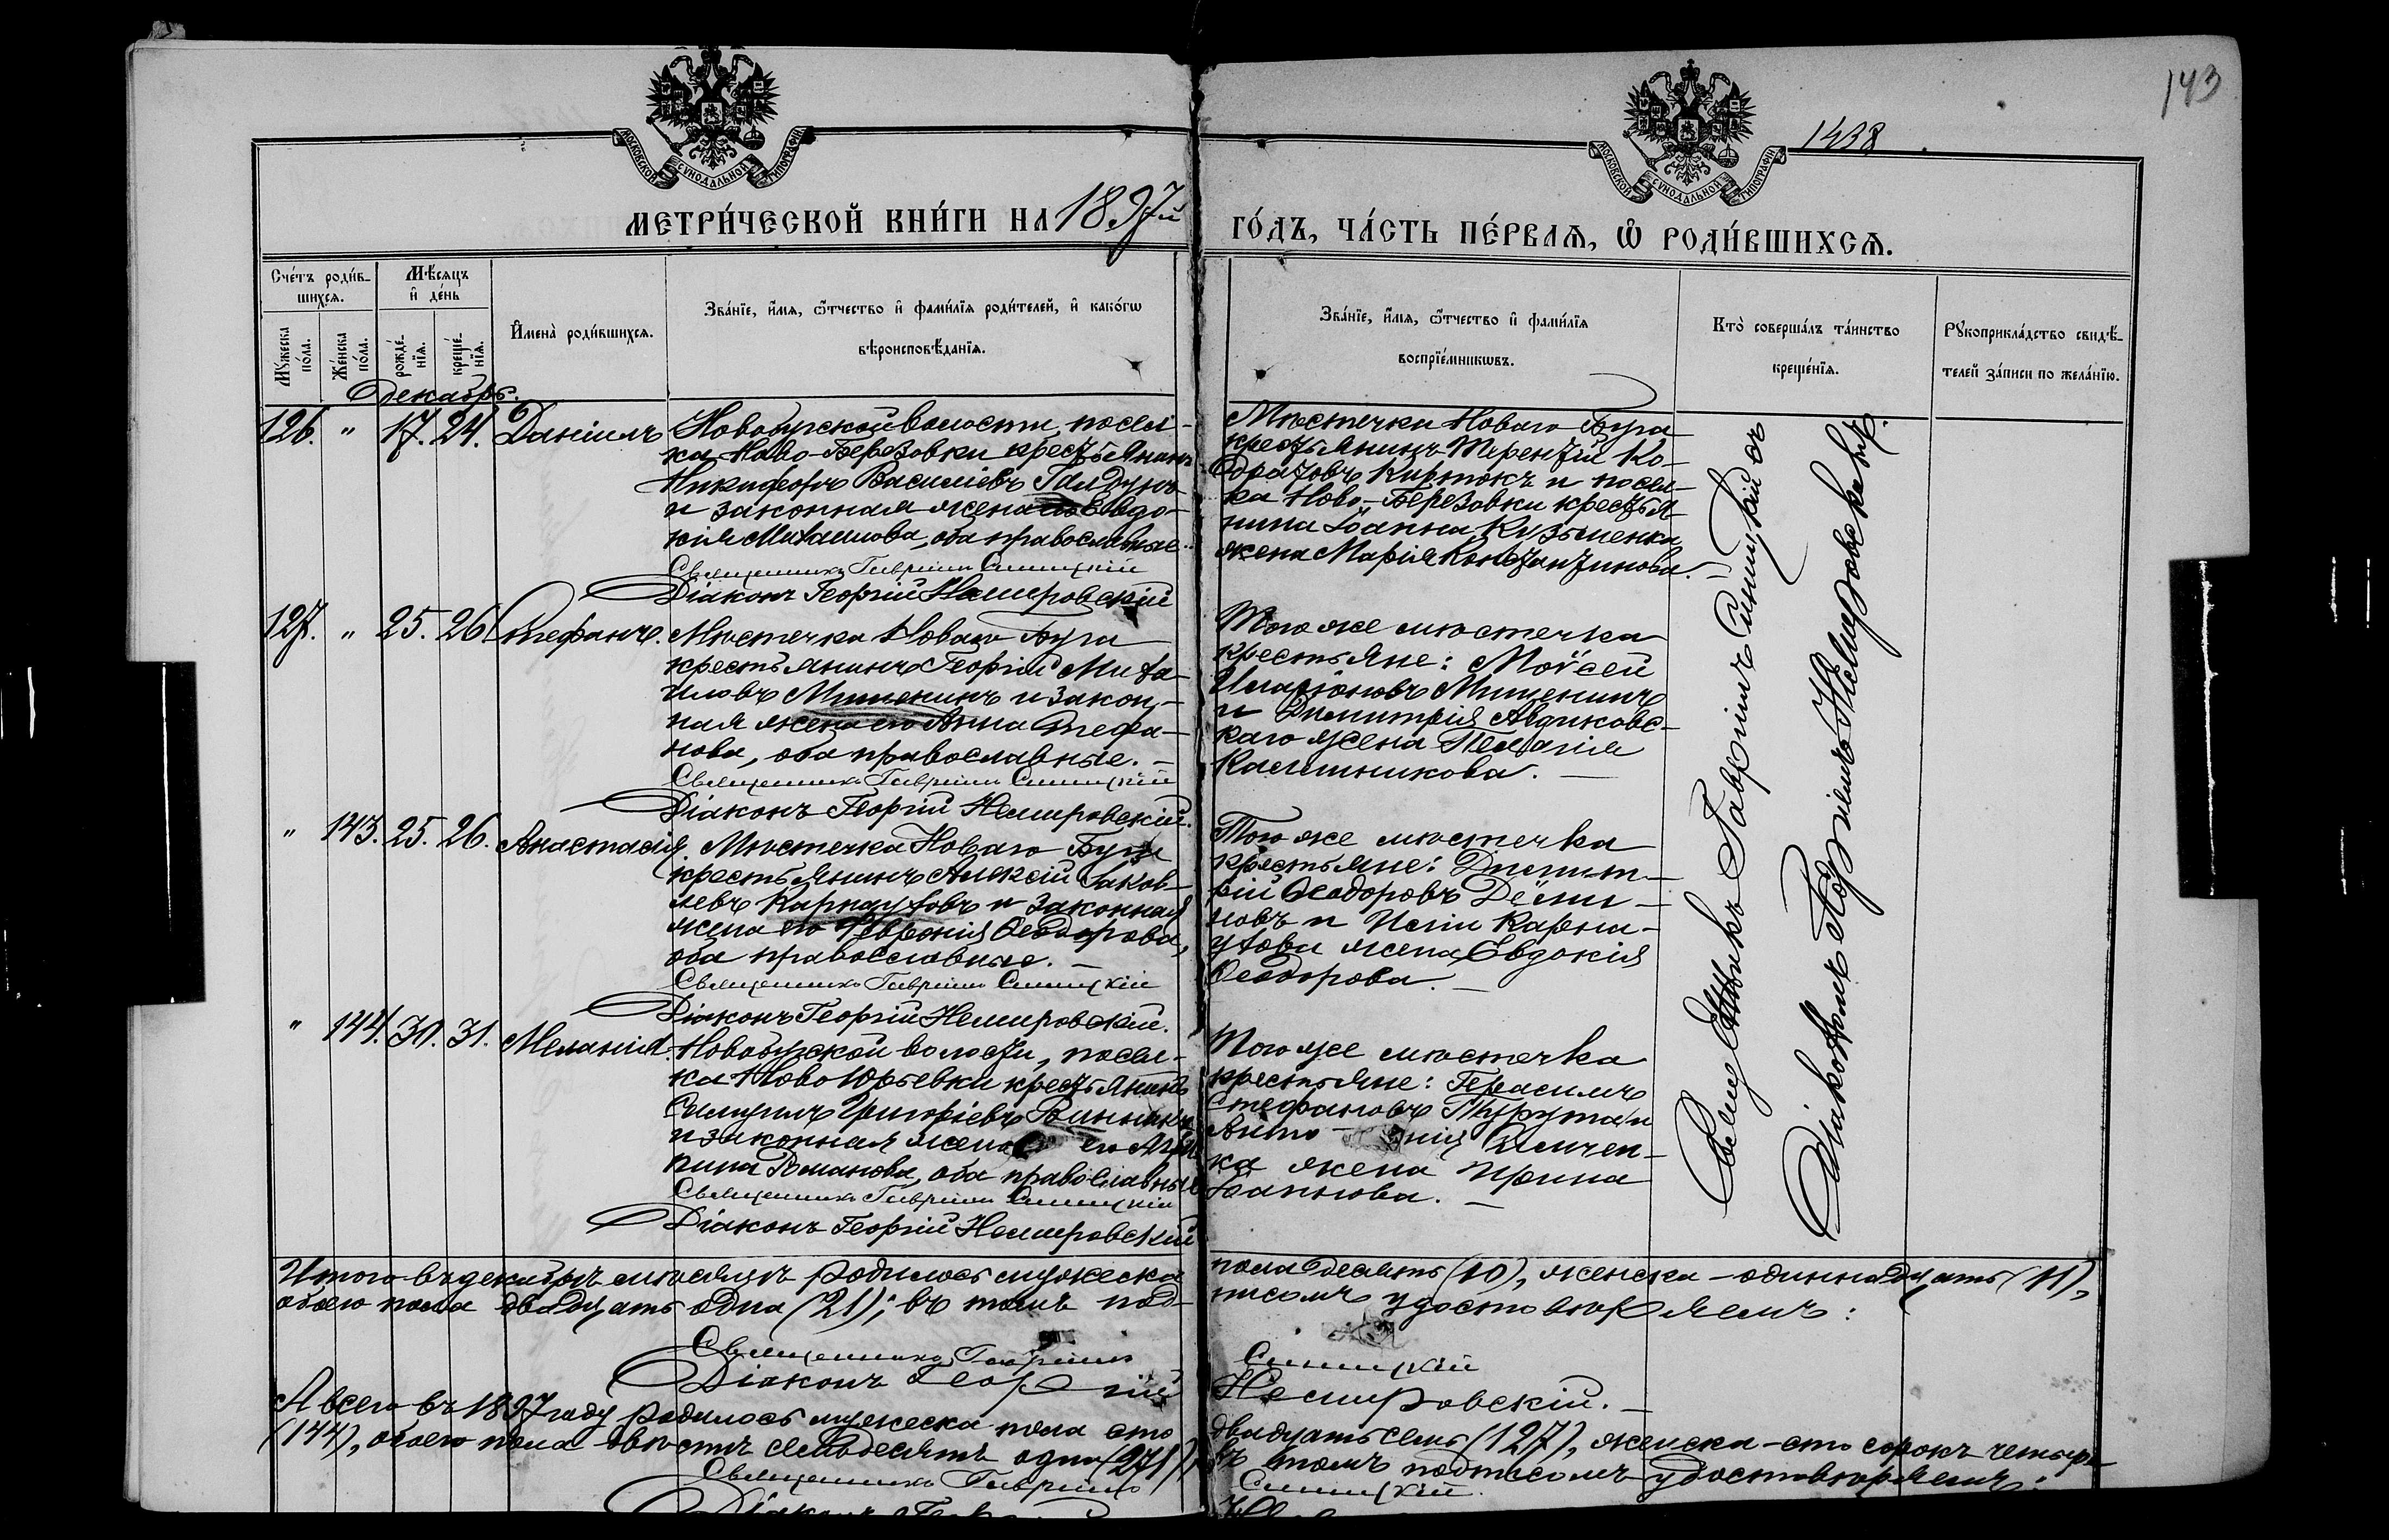 143
1438
МОСКОВСКОЙ СѴНОДАЛЬНОЙ ТИПОГРАФІИ
МОСКОВСКОЙ СѴНОДАЛЬНОЙ ТИПОГРАФІИ
МЕТРИ́ЧЕСКОЙ КНИ́ГИ НА 1897й
ГО́ДЪ, ЧА́СТЬ ПЕ́РВАѦ, Ѡ РОДИ́ВШИХСѦ.
Сче́тъ роди́в-
шихсѧ.
Мꙋ́жеска по́ла.
Же́нска по́ла.
Мѣ́сяцъ
и де́нь
рожде́-
нїѧ.
креще́-
нїѧ.
И҆мена̀ роди́вшихсѧ.
Зва́нїе, и҆́мѧ, ѻ҆́тчество и҆ фами́лїѧ роди́телей, и҆ како́гѡ
вѣроисповѣ́данїѧ.
Зва́нїе, и҆́мѧ, ѻ҆́тчество и҆ фами́лїѧ
воспрїе́мникѡвъ.
Кто̀ соверша́лъ та́инство
креще́нїѧ.
Рꙋкоприкла́дство свидѣ́-
телей за́писи по жела́нїю.
Декабрь.
126. " 17. 24. Даніилъ
Новобугской волости, посел-
ка Ново-Березовки крестьянинъ
Никифоръ Василіевъ
и законная жена его Евдо-
кія Михаилова, оба православные.
Священникъ Гавріилъ Синицкій
Діаконъ Георгій Немировскій
Мѣстечка Новаго Буга
крестьянинъ Терентій Ко-
дратовъ Киртокъ и посел-
ка Ново-Березовки крестья-
нина Іоанна Кузьменка
жена Марія Константинова.
127. " 25. 26. Стефанъ.
Мѣстечка Новаго Буга
крестьянинъ Георгій Миха-
иловъ Мишенинъ и закон-
ная жена его Анна Стефа-
нова, оба православные. —
Священникъ Гавріилъ Синицкій
Діаконъ Георгій Немировскій.
Того же мѣстечка
крестьяне: Моѵсей
Иларіоновъ Мишенинъ
и Димитрія Авдиковс-
каго жена Пелагія
Калинникова. —
" 143. 25. 26. Анастасія.
Мѣстечка Новаго Буга
крестьянинъ Алексій Іаков-
левъ Карнауховъ и законная
жена его Феѵронія Ѳеодорова,
оба православные. —
Священникъ Гавріилъ Синицкій
Діаконъ Георгій Немировскій.
Того же мѣстечка
крестьяне: Димит-
рій Ѳеодоровъ Дёми-
новъ и Иліи Карна-
ухова жена Евдокія
Ѳеодорова. —
" 144. 30. 31. Меланія.
Новобугской волости, посел-
ка Ново Юрьевки крестьянинъ
Самуилъ Григоріевъ Винникъ
и законная жена его Агри-
пина Романова, оба православные
Священникъ Гавріилъ Синицкій
Діаконъ Георгій Немировскій
Того же мѣстечка
крестьяне: Герасимъ
Стефановъ Турута и
Анто- нія
ка жена Ирина
Іоаннова. —
Священникъ Гавріилъ Синицкій съ
Діакономъ Георгіемъ Немировскимъ.
Итого въ декабрѣ мѣсяцѣ родилось мужеска пола десять (10), женска – одиннадцать (11),
обоего пола двадцать одна (21); въ томъ под- писомъ удостовѣряемъ:
Священникъ Гавріилъ Синицкій
Діаконъ Георгій Немировскій. —
А всего въ 1897 году родилось мужеска пола сто двадцать семь (127), женска – сто сорокъ четыре
(144), обоего пола двѣсти семьдесятъ одна (271); въ томъ подписомъ удостовѣряемъ:
Священникъ Гавріилъ Синицкій.